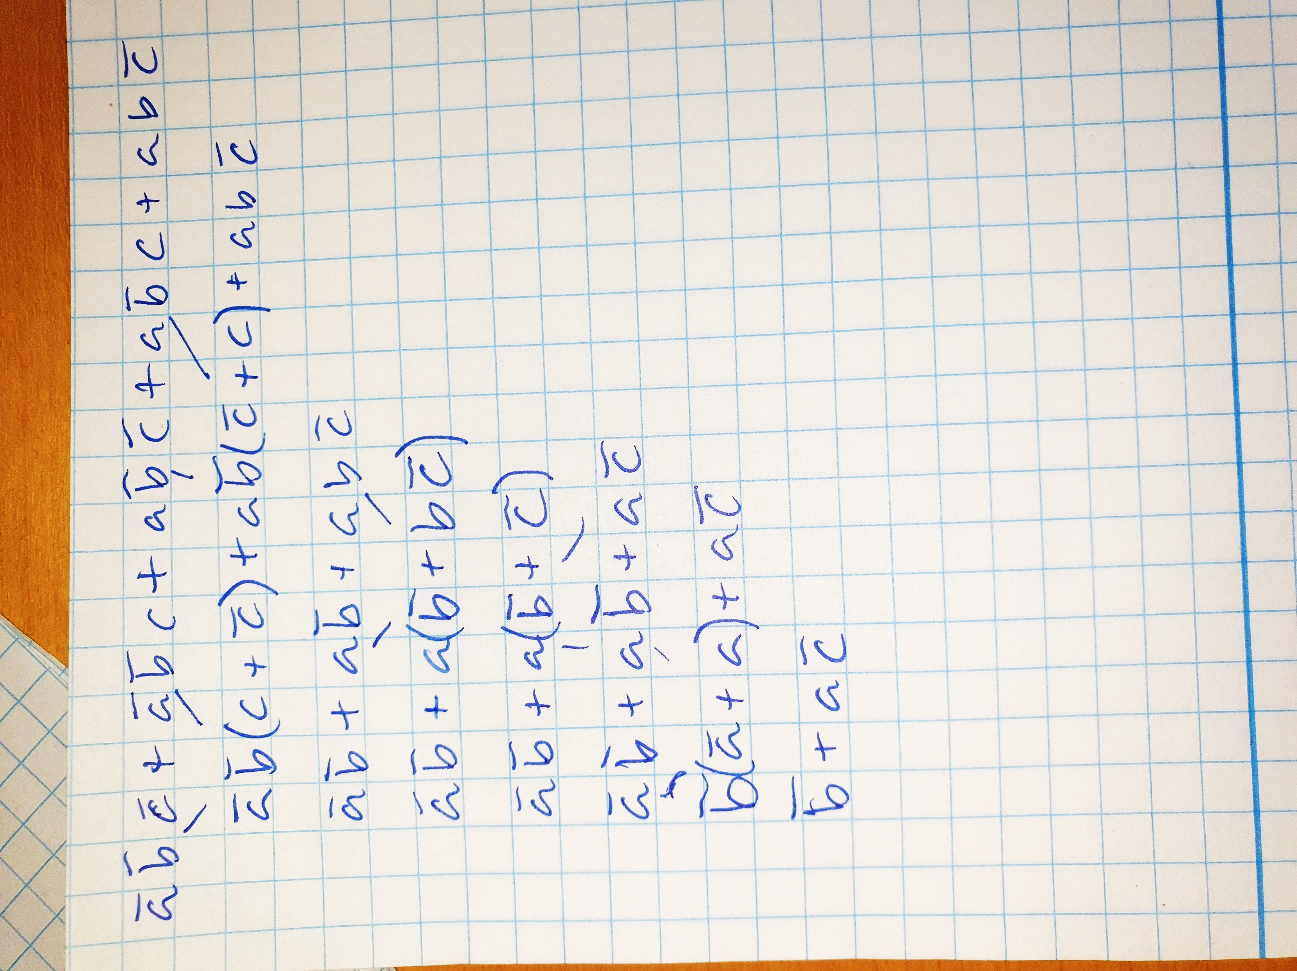 a̅ b̅ c̅ + a̅ b̅ c + a b̅ c̅ + a b̅ c + a b c̅
a̅ b̅ (c + c̅) + a b̅ (c̅ + c) + a b c̅
a̅ b̅ + a b̅ + a b c̅
a̅ b̅ + a(b̅ + b c̅)
a̅ b̅ + a(b̅ + c̅)
a̅ b̅ + a b̅ + a c̅
b̅(a̅ + a) + a c̅
b̅ + a c̅